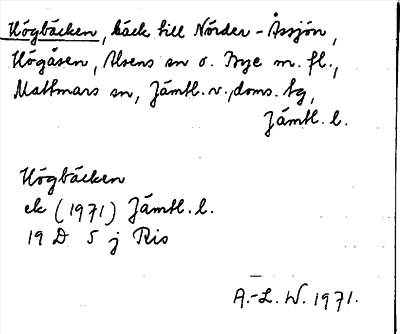 Högbäcken, bäck till Nörder-Åssjön,
Högåsen, Alsens sn o. Bye m. fl.,
Mattmars sn, Jämtl. v. doms. tg,
Jämtl. l.
Högbäcken
ek (1971) Jämtl. l.
19 D 5 j Ris
A.-L. W. 1971.